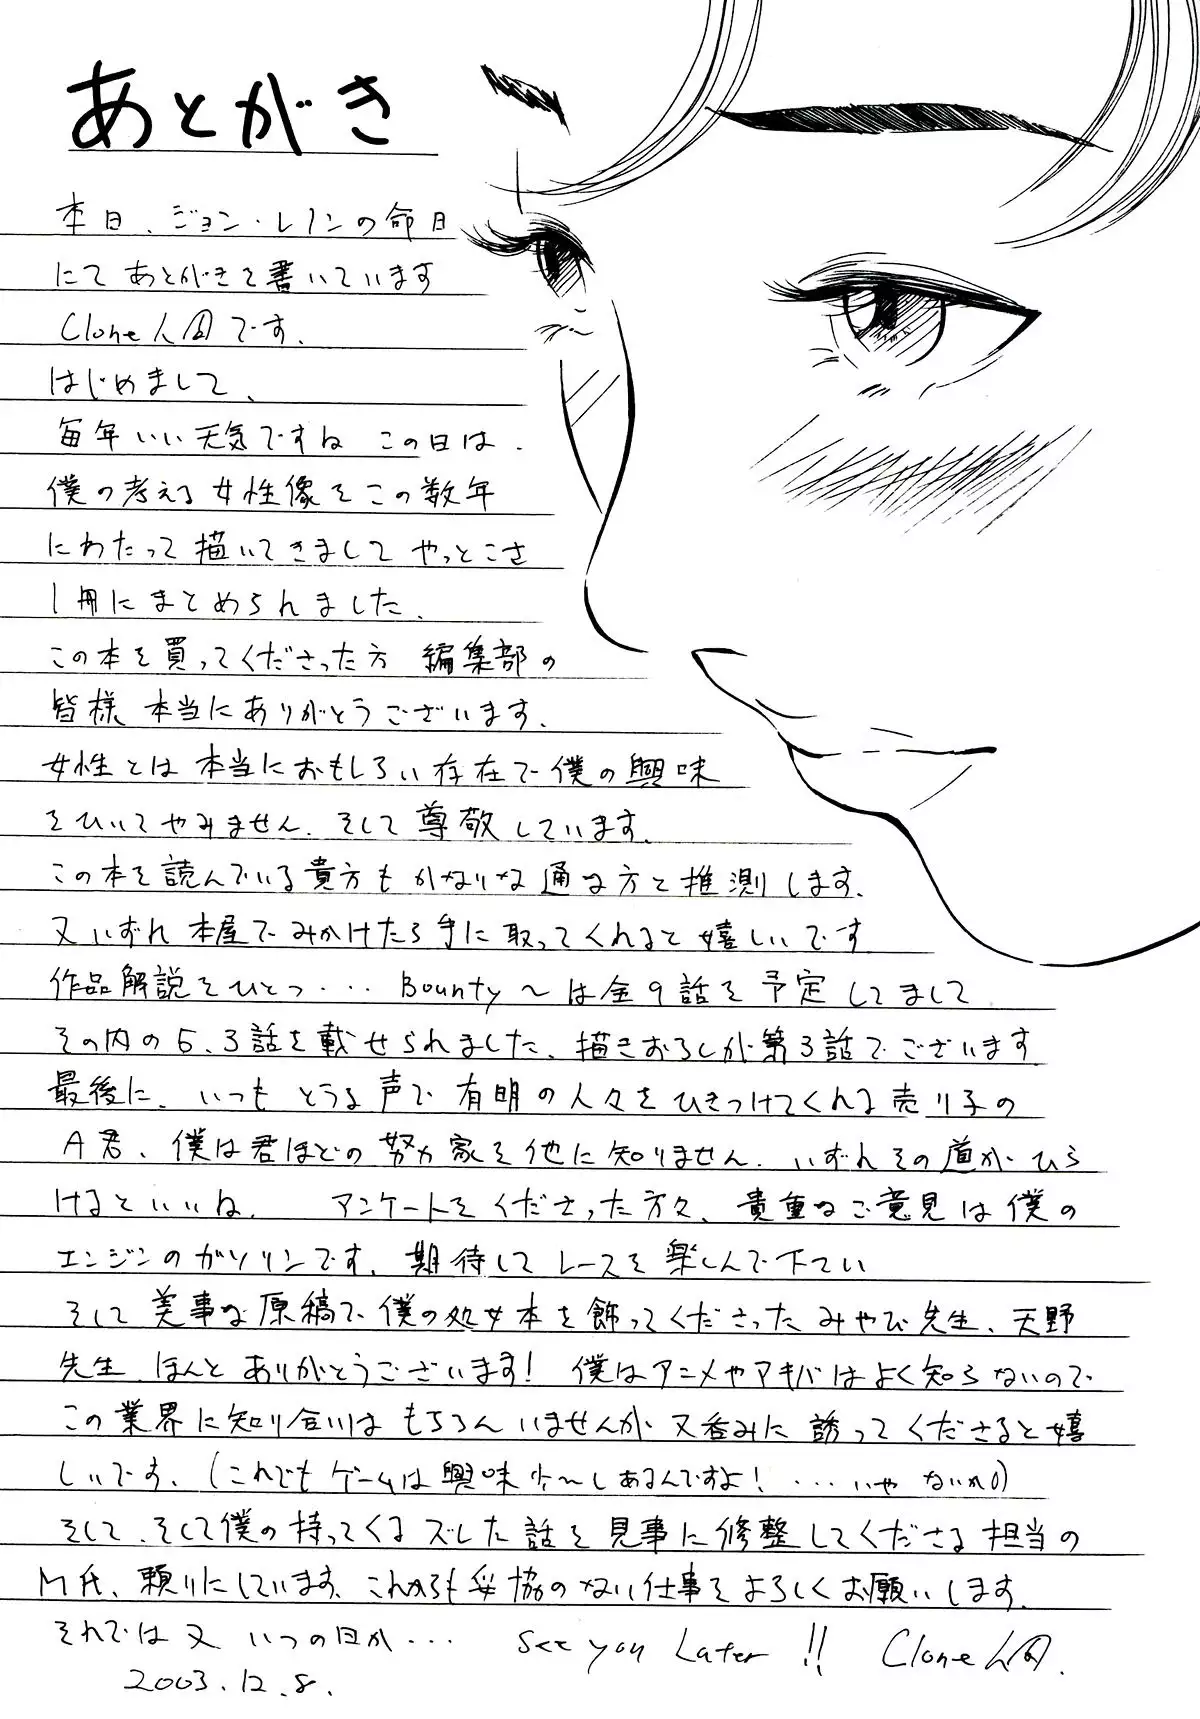 あとがき
本日、ジョン・レノンの命日
にて あとがきを書いています
Clone人間です.
はじめまして、
毎年いい天気ですね この日は.
僕の考える女性像をこの数年
にわたって描いてきまして やっとこさ
1冊にまとめられました.
この本を買ってくださった方 編集部の
皆様 本当にありがとうございます.
女性とは本当におもしろい存在で僕の興味
をひいてやみません. そして尊敬しています.
この本を読んでいる貴方もかなりな通な方と推測します.
又いずれ本屋でみかけたら手に取ってくれると嬉しいです
作品解説をひとつ・・・ Bounty〜は全9話を予定してまして
その内の5.3話を載せられました、描きおろしが第3話でございます
最後に、いつも とうる声で有明の人々をひきつけてくれる売り子の
A君、僕は君ほどの努力家を他に知りません. いずれその道がひら
けるといいね. アンケートをくださった方々、貴重なご意見は僕の
エンジンのガソリンです. 期待してレースを楽しんで下てい
そして美事な原稿で僕の処女本を飾ってくださったみやび先生、天野
先生、ほんとありがとうございます! 僕はアニメやアキバはよく知らないので
この業界に知り合いはもちろんいませんが又呑みに誘ってくださると嬉
しいです. (これでもゲームは興味少〜しあるんですよ!・・・いや ないかの)
そして、そして僕の持ってくるズレた話を見事に修整してくださる担当の
M氏、頼りにしています、これからも妥協のない仕事をよろしくお願いします.
それでは又 いつの日か・・・ See you Later!! Clone人間.
2003.12.8.